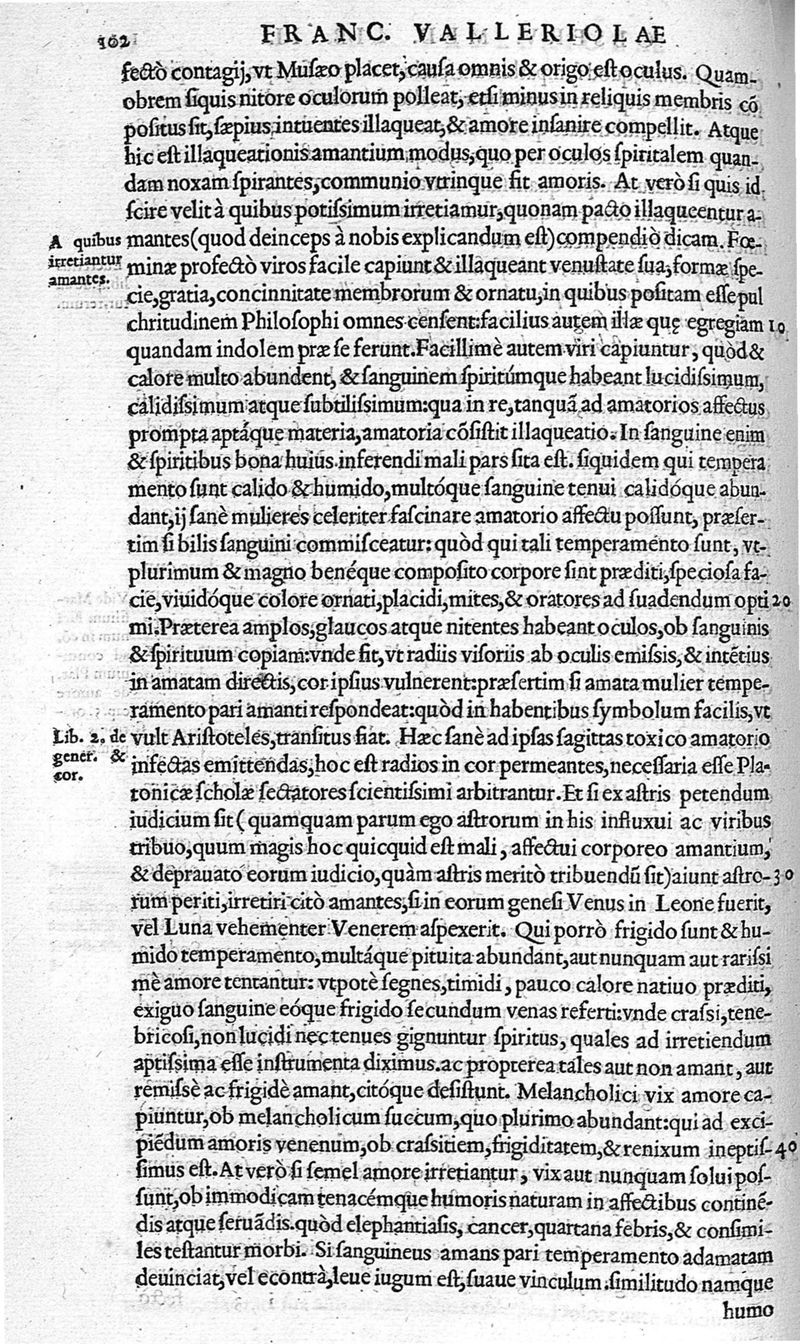 302 FRANC. VALLERIOLAE
fectò contagij, vt Musæo placet, causa omnis & origo est oculus. Quam-
obrem siquis nitore oculorum polleat, etsi minus in reliquis membris cō
positus sit, sæpius intuentes illaqueat, & amore insanire compellit. Atque
hic est illaqueationis amantium modus, quo per oculos spiritalem quan-
dam noxam spirantes, communio vtrinque fit amoris. At verò si quis id
scire velit à quibus potissimum irretiamur, quonam pacto illaqueentur a-
A quibus irretiantur amantes.
mantes (quod deinceps à nobis explicandum est) compendiò dicam. Fœ-
minæ profectò viros facile capiunt & illaqueant venustate sua, formæ spe-
cie, gratia, concinnitate membrorum & ornatu, in quibus positam esse pul
chritudinem Philosophi omnes censent: facilius autem illæ quę egregiam 10
quandam indolem præ se ferunt. Facillimè autem viri capiuntur, quòd &
calore multo abundent, & sanguinem spiritúmque habeant lucidissimum,
calidissimum atque subtilissimum: qua in re, tanquā ad amatorios affectus
prompta aptáque materia, amatoria cōsistit illaqueatio. In sanguine enim
& spiritibus bona huius inferendi mali pars sita est. siquidem qui tempera
mento sunt calido & humido, multóque sanguine tenui calidóque abun-
dant, ij sanè mulieres celeriter fascinare amatorio affectu possunt, præser-
tim si bilis sanguini commisceatur: quòd qui tali temperamento sunt, vt-
plurimum & magno benéque composito corpore sint præditi, speciosa fa-
cie, viuidóque colore ornati, placidi, mites, & oratores ad suadendum opti 20
mi. Præterea amplos, glaucos atque nitentes habeant oculos, ob sanguinis
& spirituum copiam: vnde fit, vt radiis visoriis ab oculis emissis, & intētius
in amatam directis, cor ipsius vulnerent: præsertim si amata mulier tempe-
ramento pari amanti respondeat: quòd in habentibus symbolum facilis, vt
Lib. 2. de gener. & cor.
vult Aristoteles, transitus fiat. Hæc sanè ad ipsas sagittas toxico amatorio
infectas emittendas, hoc est radios in cor permeantes, necessaria esse Pla-
tonicæ scholæ sectatores scientissimi arbitrantur. Et si ex astris petendum
iudicium sit (quamquam parum ego astrorum in his influxui ac viribus
tribuo, quum magis hoc quicquid est mali, affectui corporeo amantium,
& deprauato eorum iudicio, quàm astris meritò tribuendū sit) aiunt astro- 30
rum periti, irretiri citò amantes, si in eorum genesi Venus in Leone fuerit,
vel Luna vehementer Venerem aspexerit. Qui porrò frigido sunt & hu-
mido temperamento, multáque pituita abundant, aut nunquam aut rarissi
mè amore tentantur: vtpotè segnes, timidi, pauco calore natiuo præditi,
exiguo sanguine eóque frigido secundum venas referti: vnde crassi, tene-
bricosi, non lucidi nec tenues gignuntur spiritus, quales ad irretiendum
aptissima esse instrumenta diximus. ac propterea tales aut non amant, aut
remissè ac frigidè amant, citóque desistunt. Melancholici vix amore ca-
piuntur, ob melancholicum succum, quo plurimo abundant: qui ad exci-
piēdum amoris venenum, ob crassitiem, frigiditatem, & renixum ineptis- 40
simus est. At verò si semel amore irretiantur, vix aut nunquam solui pos-
sunt, ob immodicam tenacémque humoris naturam in affectibus continē-
dis atque seruādis. quòd elephantiasis, cancer, quartana febris, & consimi-
les testantur morbi. Si sanguineus amans pari temperamento adamatam
deuinciat, vel econtrà, leue iugum est, suaue vinculum: similitudo namque
humo